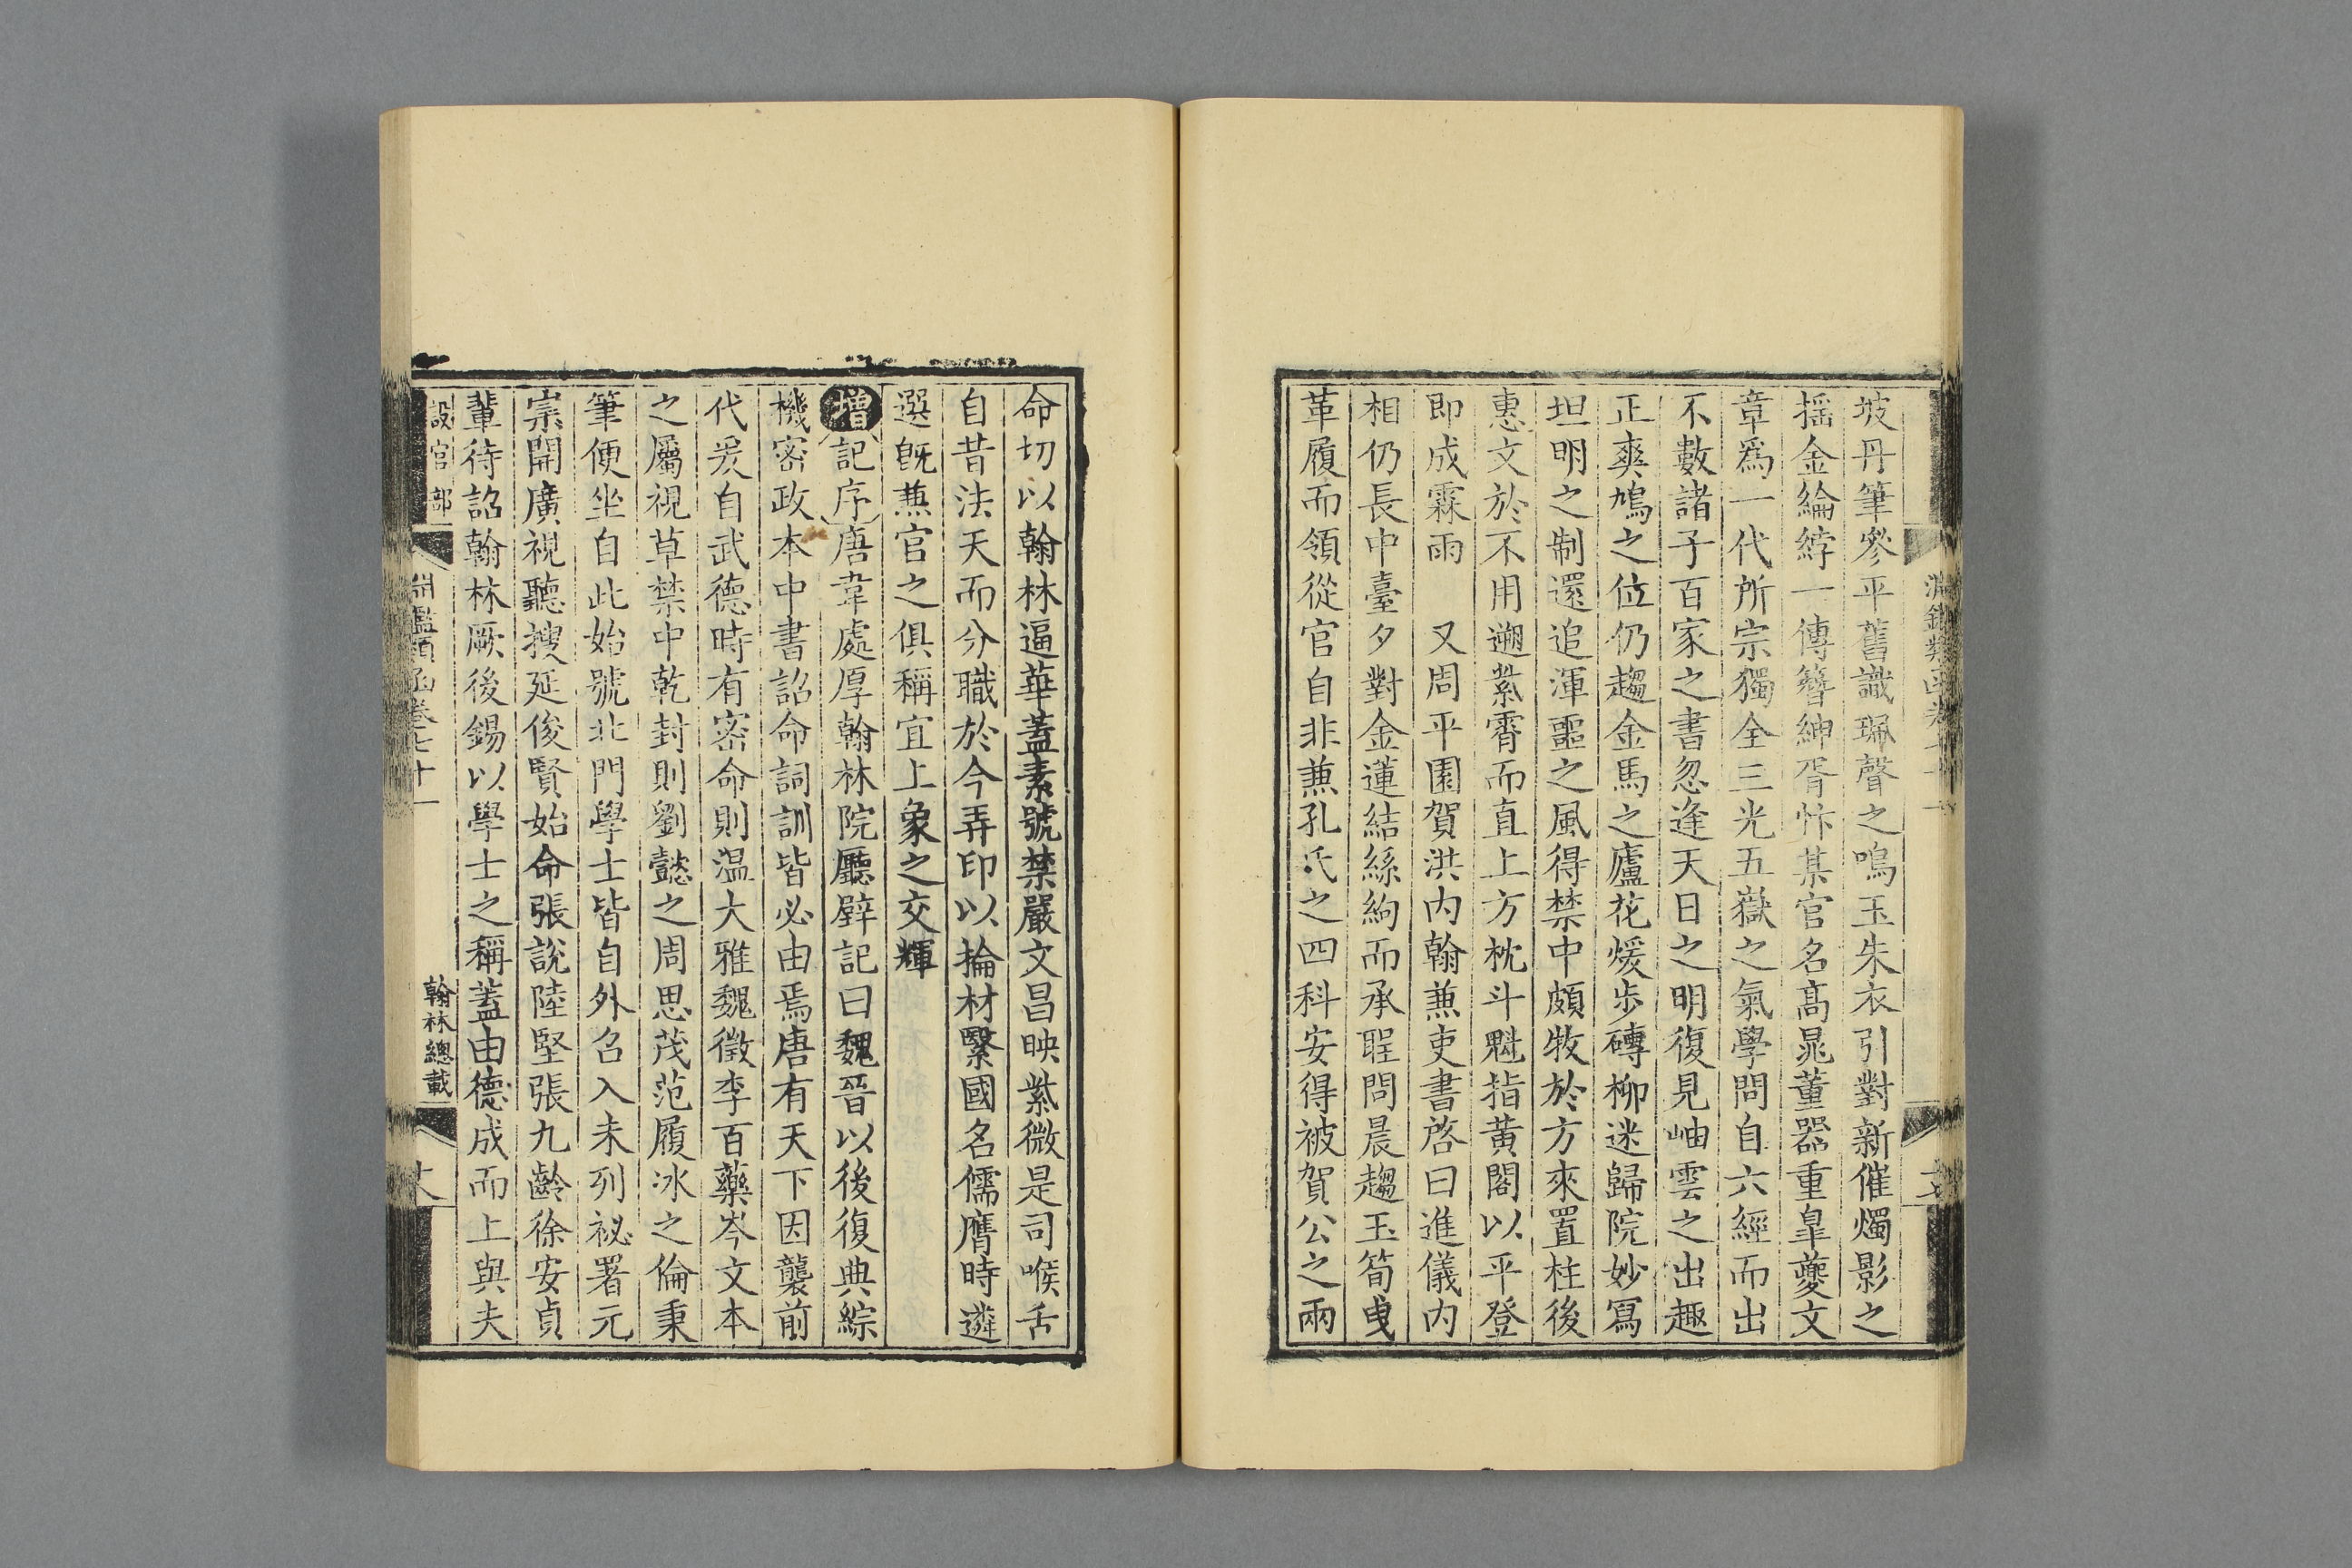 坡丹筆參平舊識珮聲之鳴玉朱衣引對新催燭影之
揺金綸綍一傳簪紳胥忭某官名髙晁董器重臯夔文
章爲一代所宗獨全三光五嶽之氣學問自六經而出
不數諸子百家之書忽逢天日之明復見岫雲之出趣
正爽鳩之位仍趨金馬之廬花煖步磚柳迷歸院妙冩
坦明之制還追渾噩之風得禁中頗牧於方來置柱後
惠文於不用遡紫霄而直上方枕斗魁指黄閣以平登
即成霖雨 又周平園賀洪内翰兼吏書啓曰進儀内
相仍長中臺夕對金蓮結絲絇而承聖問晨趨玉筍曵
革履而領從官自非兼孔氏之四科安得被賀公之兩
命切以翰林逼華蓋素號禁嚴文昌映紫微是司喉舌
自昔法天而分職於今弄印以掄材繄國名儒膺時遴
選旣兼官之俱稱宜上象之交輝
增記序唐韋處厚翰林院廳壁記曰魏晉以後復典綜
機密政本中書詔命詞訓皆必由焉唐有天下因襲前
代爰自武德時有密命則温大雅魏徵李百藥岑文本
之屬視草禁中乾封則劉懿之周思茂范履冰之倫秉
筆便坐自此始號北門學士皆自外召入未列祕署元
崇開廣視聽搜延俊賢始命張說陸堅張九齡徐安貞
輩待詔翰林厥後錫以學士之稱蓋由德成而上與夫
設官部
淵鑑類函卷七十一
翰林總載
十八